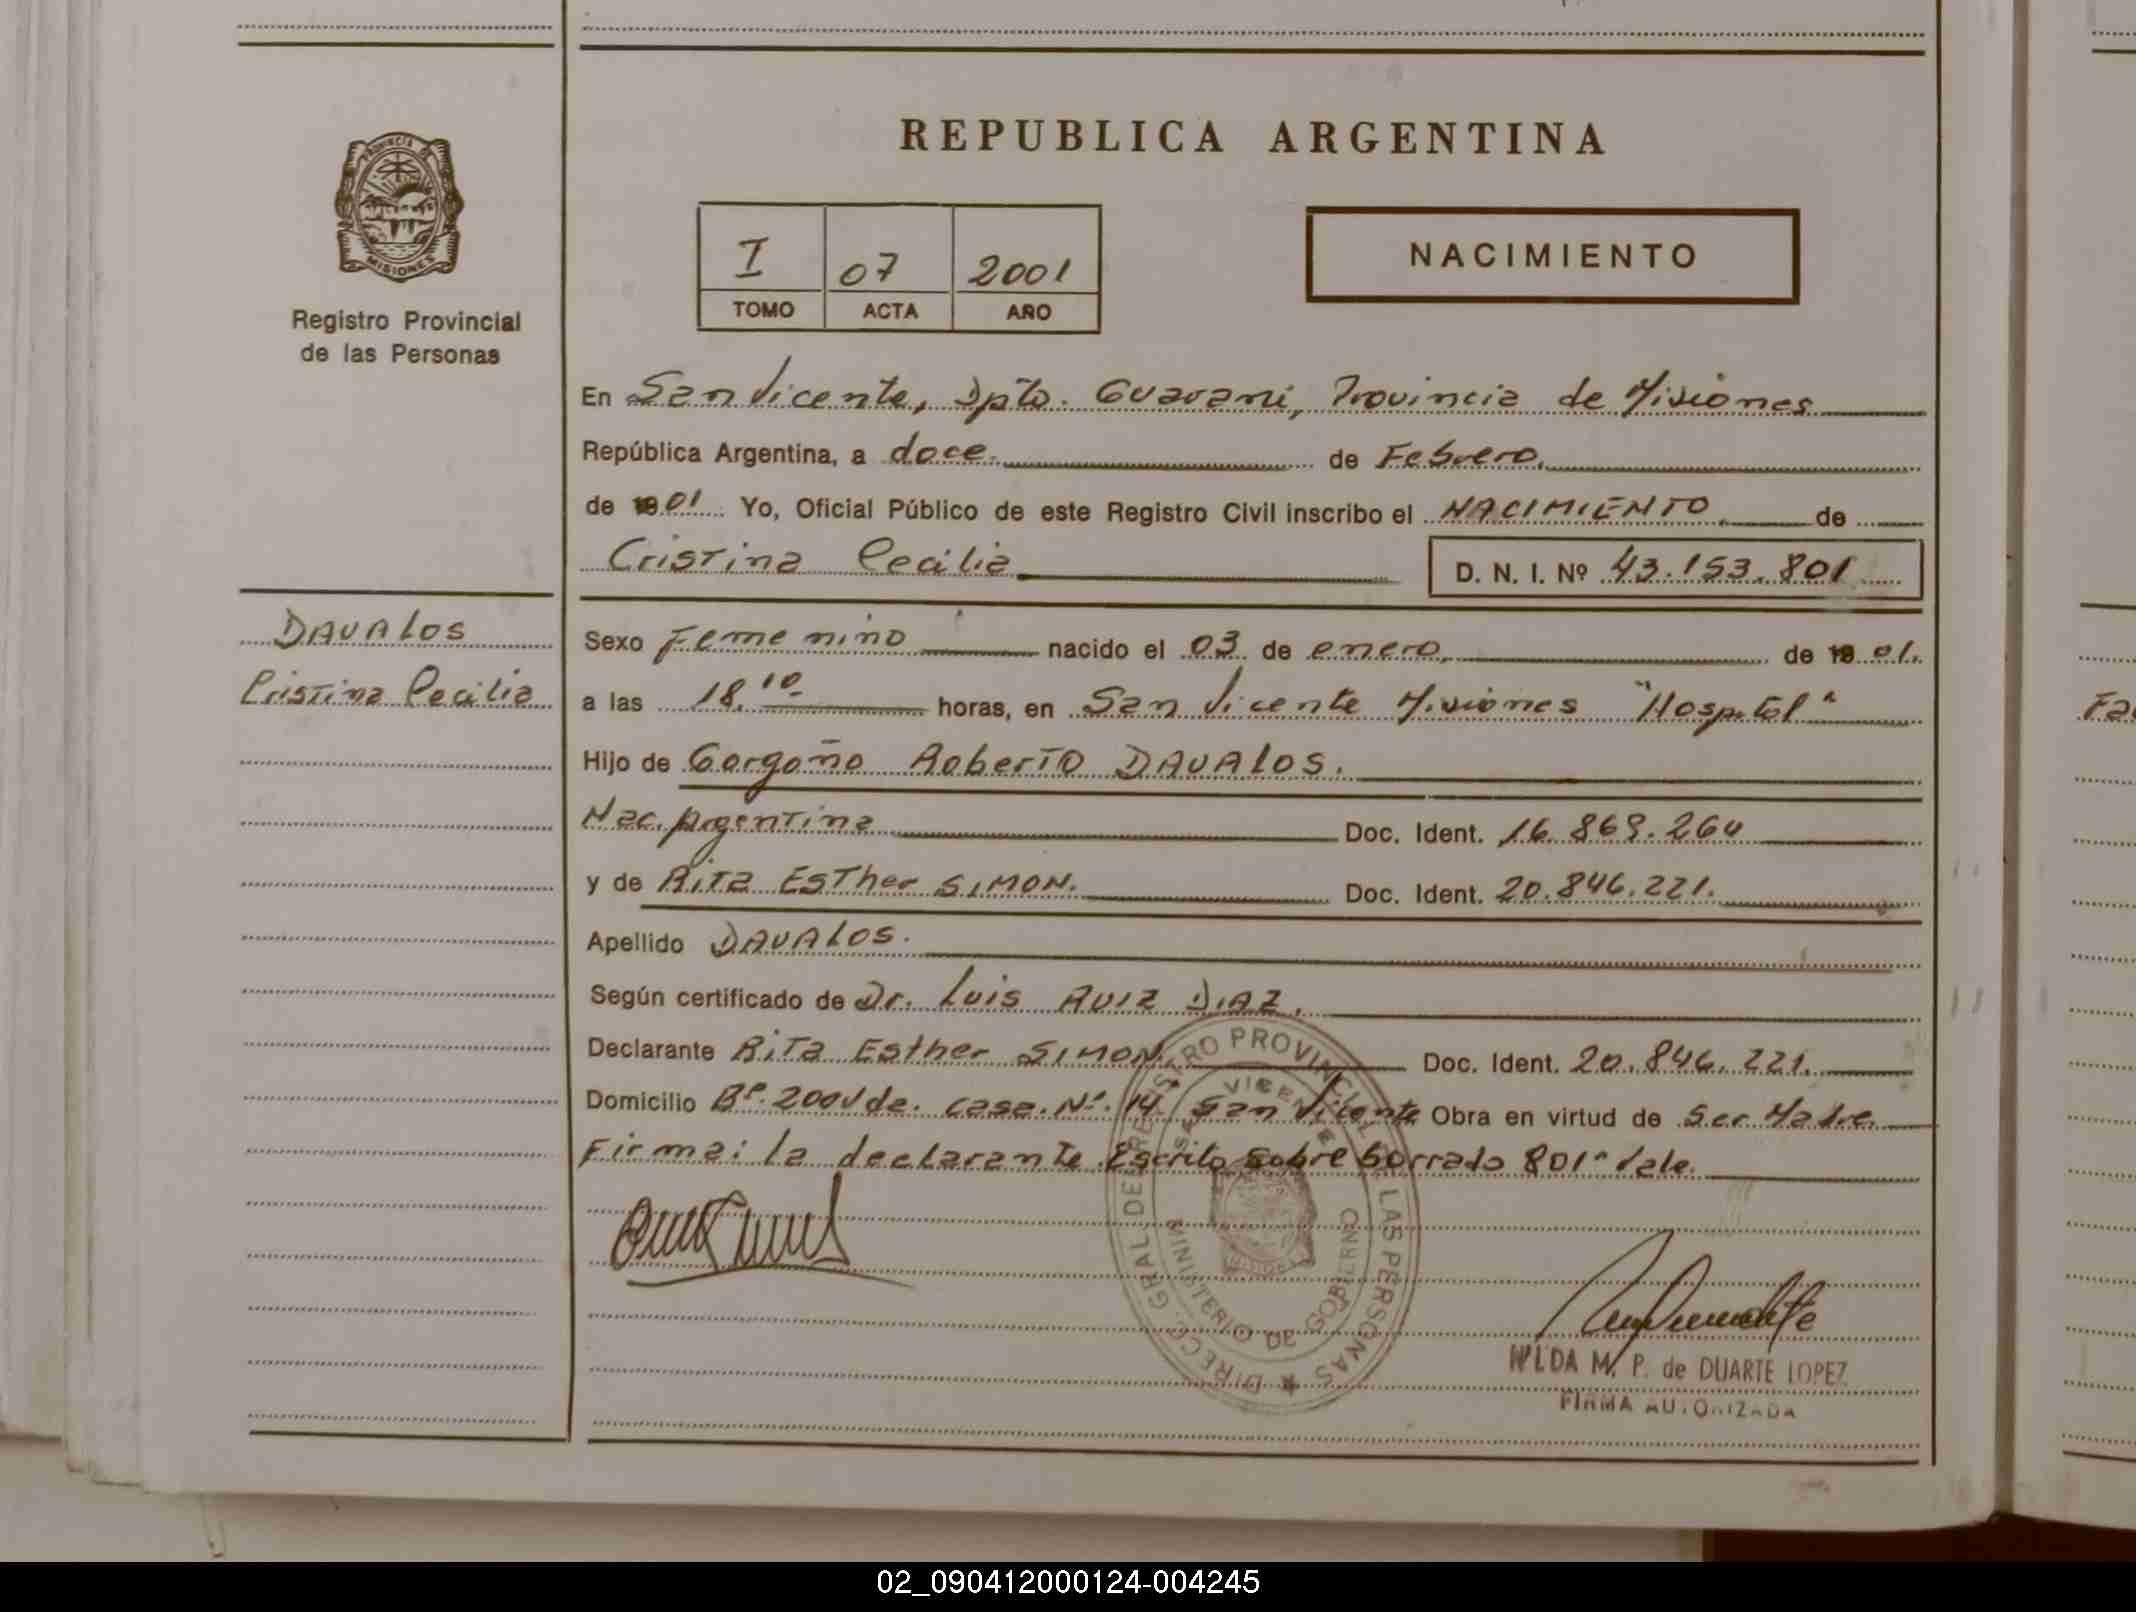 REPUBLICA ARGENTINA
PROVINCIA DE
MISIONES
Registro Provincial
de las Personas
I 07 2001
TOMO ACTA AÑO
NACIMIENTO
En San Vicente, Dpto. Guarani, Provincia de Misiones
República Argentina, a doce. de Febrero.
de 1901 Yo, Oficial Público de este Registro Civil inscribo el NACIMIENTO. de
Cristina Cecilia D. N. I. Nº 43.153.801
DAVALOS
Cristina Cecilia
Sexo Femenino nacido el 03 de enero. de 1901.
a las 18.10 horas, en San Vicente Misiones "Hospital"
Hijo de Gorgoño Roberto DAVALOS.
Nac. Argentina Doc. Ident. 16.869.260
y de Rita Esther SIMON. Doc. Ident. 20.846.221.
Apellido DAVALOS.
Según certificado de Dr. Luis RUIZ DIAZ.
Declarante Rita Esther SIMON. Doc. Ident. 20.846.221.
Domicilio Bº. 200 Vde. casa. Nº. 14 San Vicente Obra en virtud de Ser Madre.
Firma: la declarante. Escrito sobre borrado 801" Vale.
DIRECC. GRAL DEL REGISTRO PROVINCIAL LAS PERSONAS
SAN VICENTE
MINISTERIO DE GOBIERNO
MISIONES
HILDA M. P. de DUARTE LOPEZ
FIRMA AUTORIZADA
02_090412000124-004245